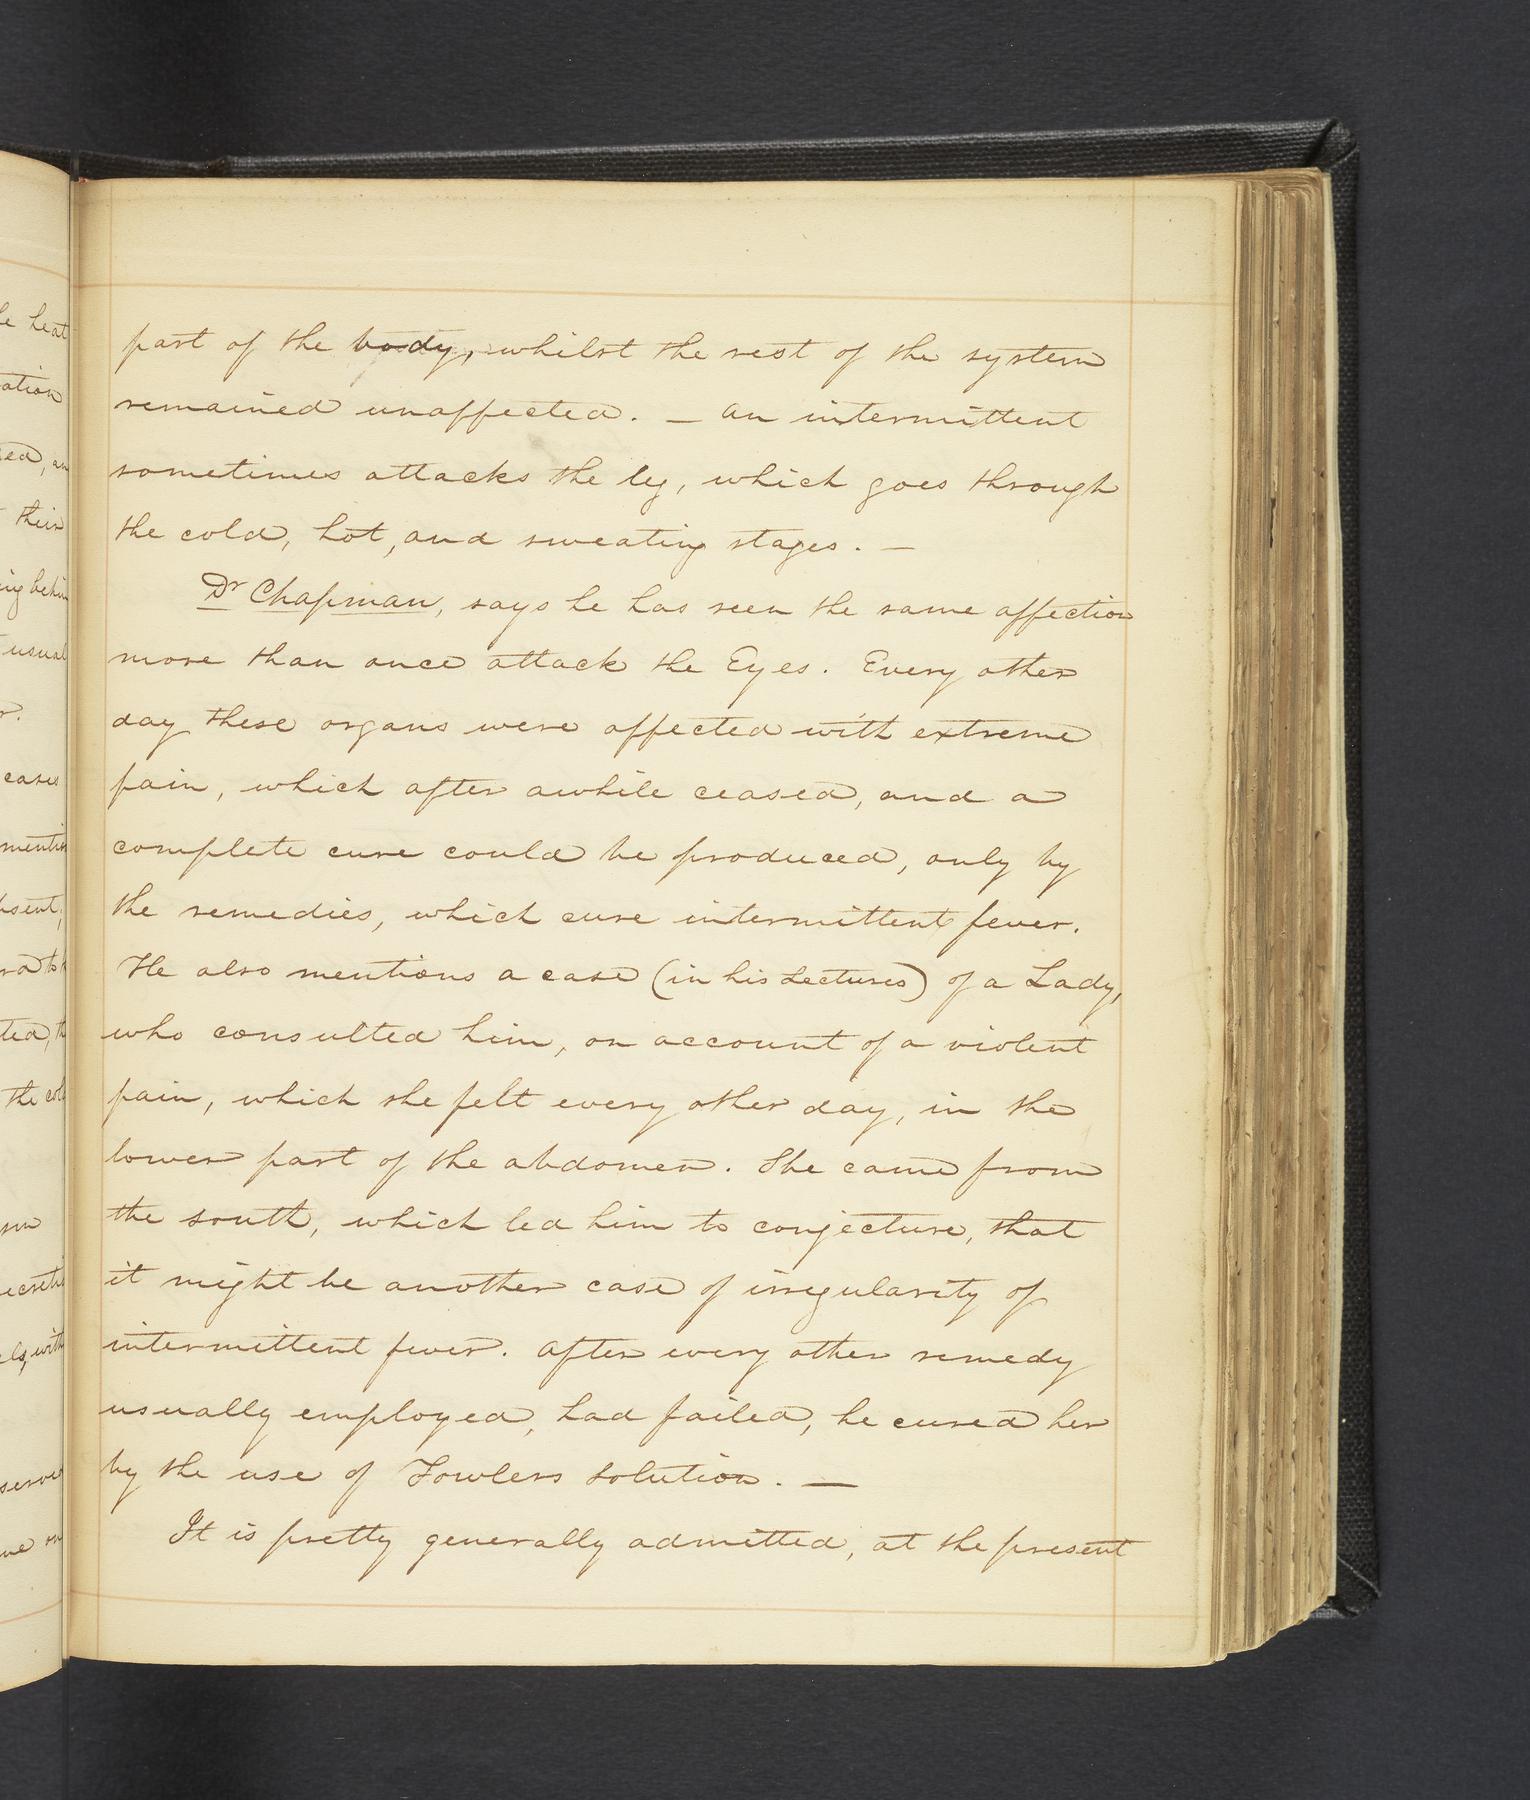 part of the body, whilst the rest of the system
remained unaffected. — An intermittent
sometimes attacks the leg, which goes through
the cold, hot, and sweating stages. —
Dr Chapman, says he has seen the same affection
more than once attack the Eyes. Every other
day these organs were affected with extreme
pain, which after awhile ceased, and a
complete cure could be produced, only by
the remedies, which cure intermittent fever.
He also mentions a case (in his Lectures) of a Lady,
who consulted him, on account of a violent
pain, which she felt every other day, in the
lower part of the abdomen. She came from
the south, which led him to conjecture, that
it might be another case of irregularity of
intermittent fever. After every other remedy
usually employed, had failed, he cured her
by the use of Fowlers Solution. —
It is pretty generally admitted, at the present